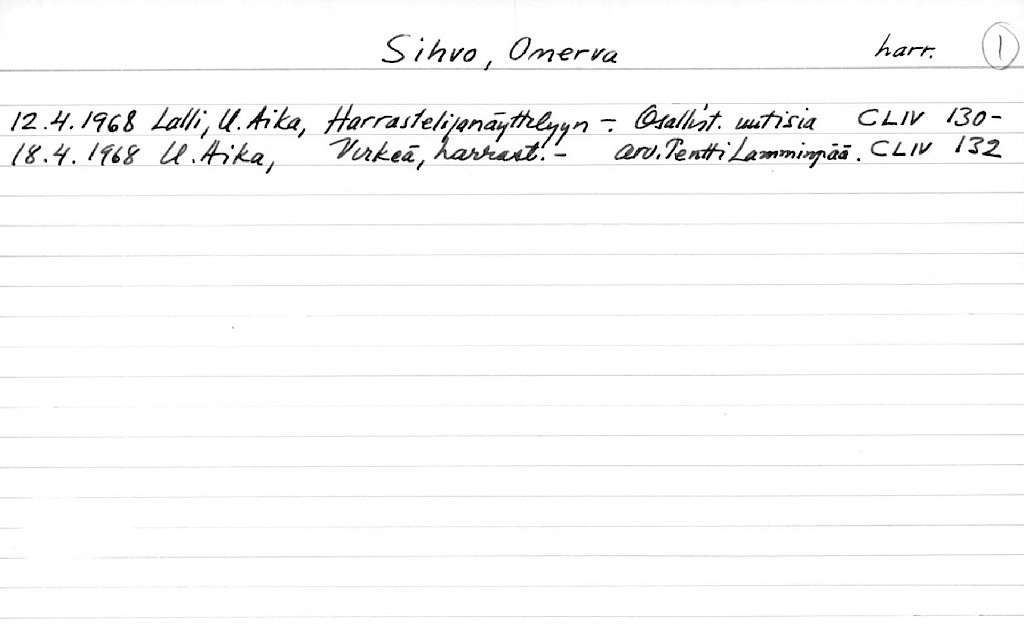 Sihvo, Omerva harr. 1
12.4.1968 Lalli, U. Aika, Harrastelijanäyttelyyn -. Osallist. uutisia CLIV 130-
18.4.1968 U. Aika, Virkeä, harrast. - arv. Pentti Lamminpää. CLIV 132